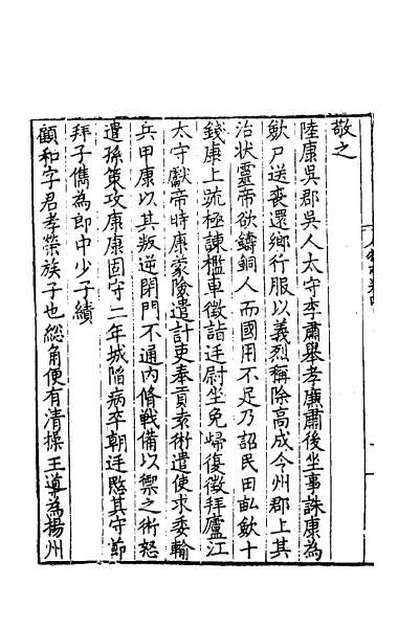 敬之
陸康吳郡吳人太守李肅舉孝廉肅後坐事誅康為
歛尸送喪還鄉行服以義烈稱除高成令州郡上其
治狀靈帝欲鑄銅人而國用不足乃詔民田畝歛十
錢康上䟽極諫檻車徵詣廷尉坐免歸復徵拜廬江
太守獻帝時康蒙險遣計吏奉貢袁術遣使求委輸
兵甲康以其叛逆閉門不通內修戰備以禦之術怒
遣孫策攻康康固守二年城陷病卒朝廷愍其守節
拜子儁為郎中少子績
顧和字君孝榮族子也総角便有清操王導為揚州